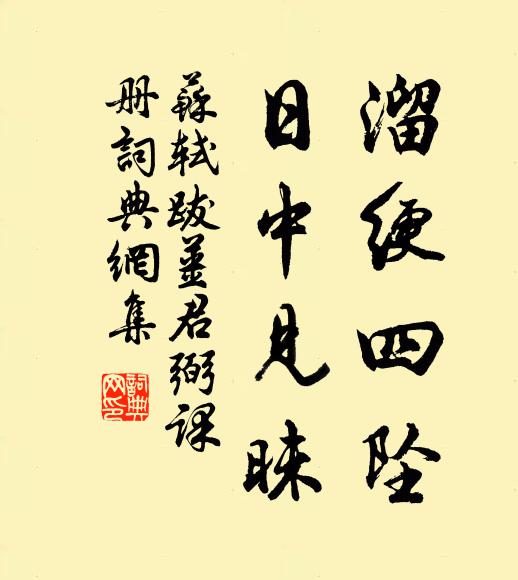 溜绠四坠
日中見昧
蘇軾跋姜君弼課
册詞典網集
詞典
网印